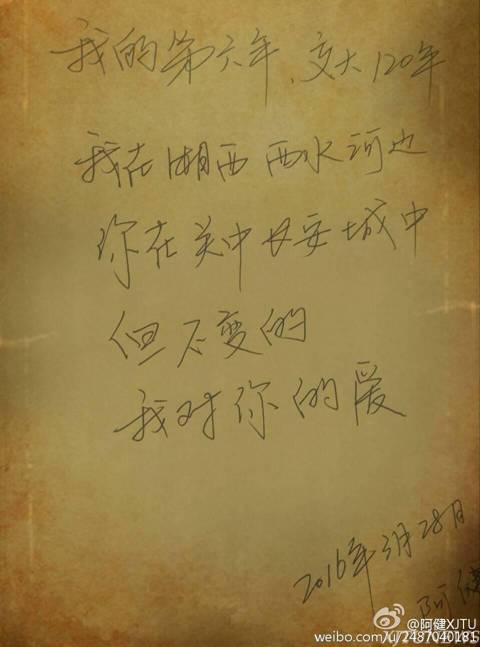 我的第六年、交大120年
我在湘西 酉水河边
你在关中长安城中
但不变的
我对你的爱
2016年3月28日
阿健
@阿健XJTU
weibo.com/u/2487040181